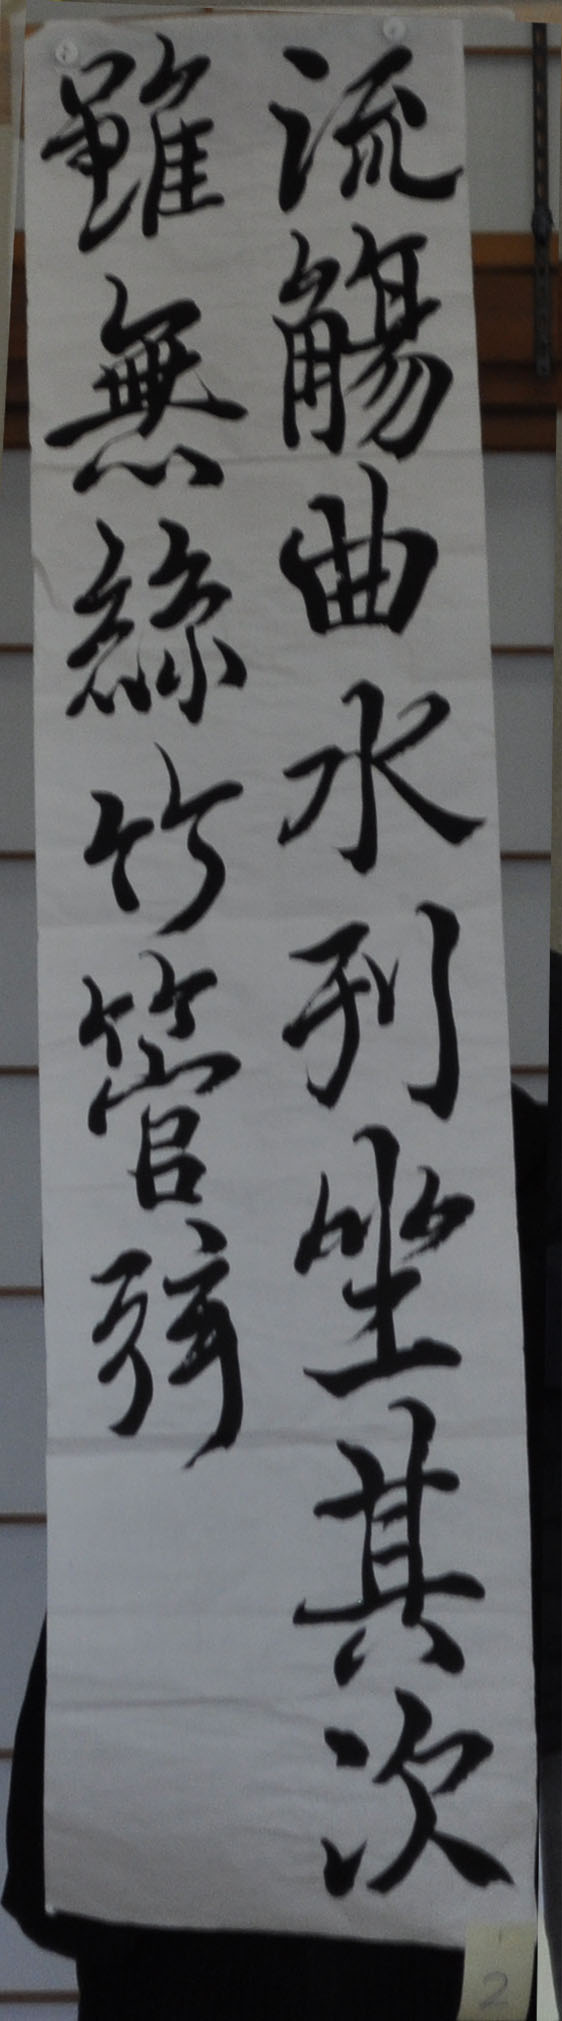 流觴曲水列坐其次
雖無絲竹管弦
2